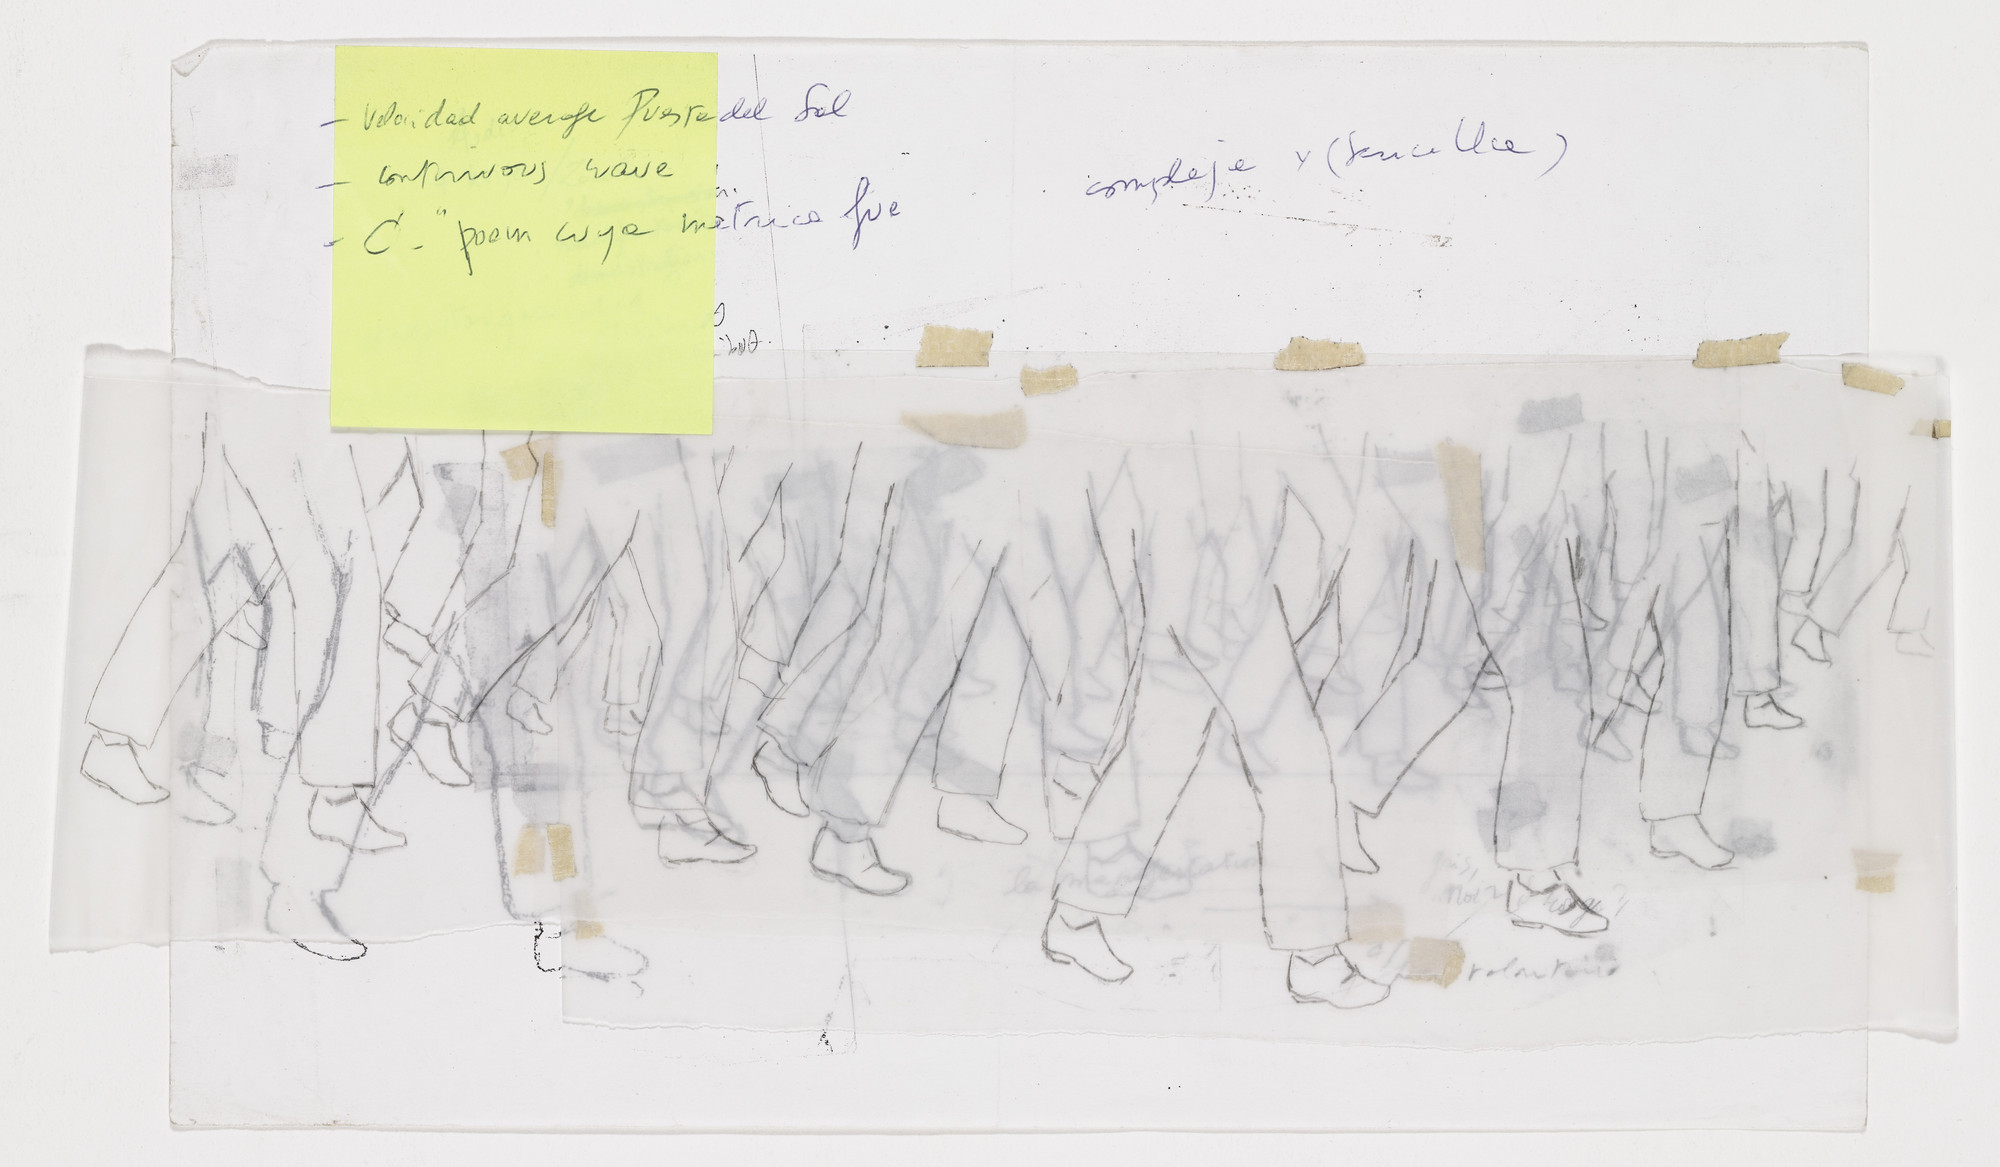 - Velocidad average Puesta del Sol
- continuous wave
- C - "poem cuya metrica fue
compleje y (sencilla)
la manifestation
noir rouge?
volontaire